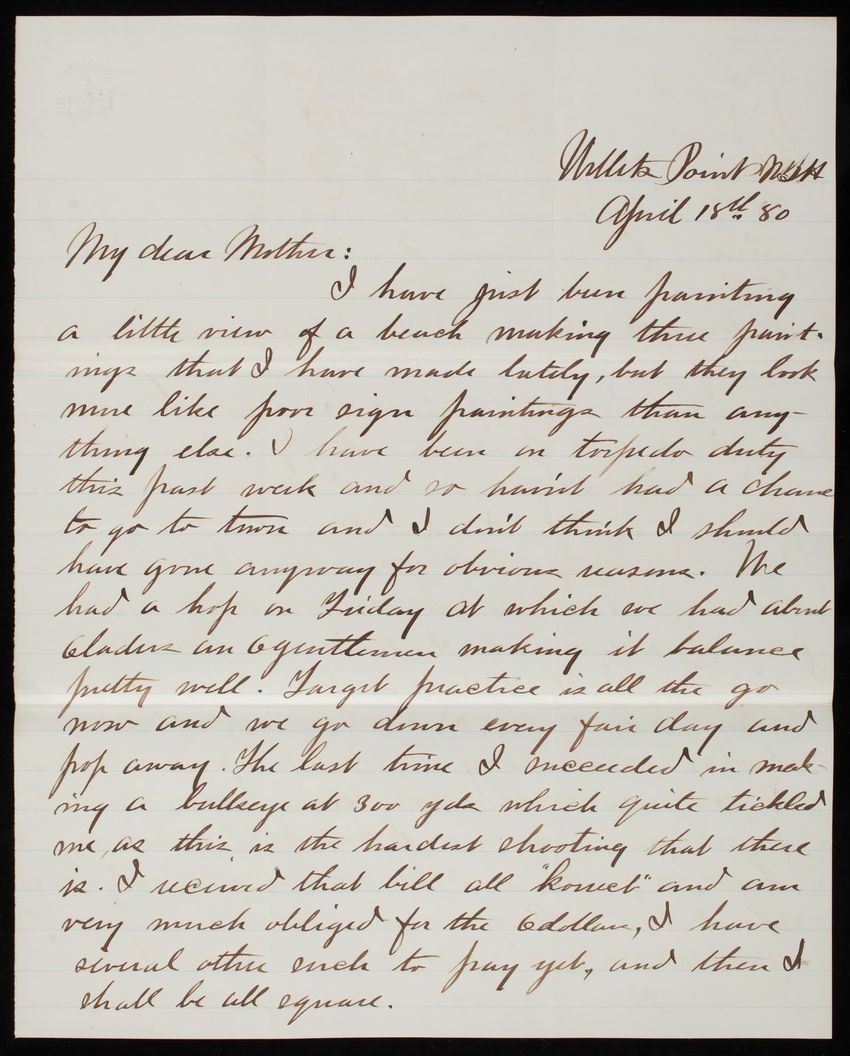 Willets Point NYH
April 18th 80
My dear Mother:
I have just been painting
a little view of a beach making three paint-
ings that I have made lately, but they look
more like poor sign paintings than any-
thing else. I have been on torpedo duty
this past week and so havn't had a chance
to go to town and I don't think I should
have gone anyway for obvious reasons. We
had a hop on Friday at which we had about
6 ladies an 6 gentlemen making it balance
pretty well. Target practice is all the go
now and we go down every fair day and
pop away. The last time I succeeded in mak-
ing a bullseye at 300 yds which quite tickled
me, as this is the hardest shooting that there
is. I received that bill all "korrect" and am
very much obliged for the 6 dollars, I have
several other such to pay yet, and then I
shall be all square.